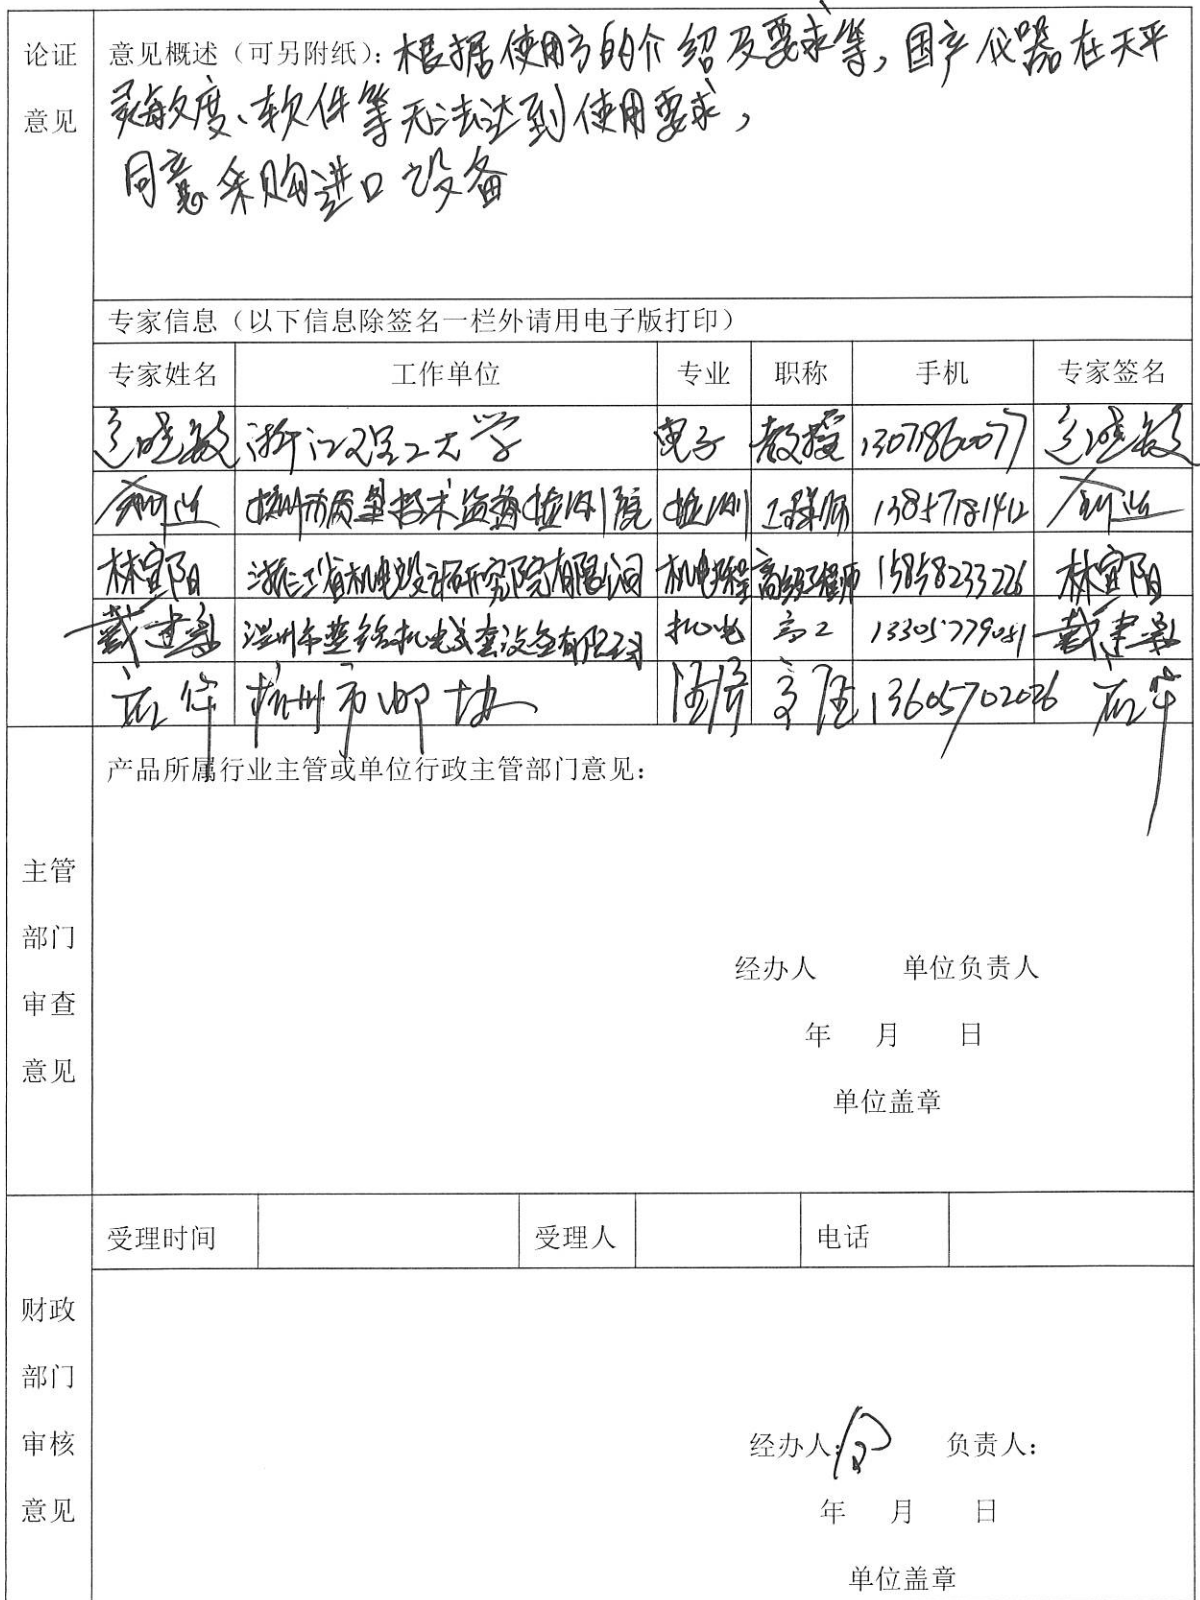 论证
意见
意见概述（可另附纸）：根据使用方的介绍及要求等，国产仪器在天平
灵敏度、软件等无法达到使用要求，
同意采购进口设备
专家信息（以下信息除签名一栏外请用电子版打印）
专家姓名 工作单位 专业 职称 手机 专家签名
晓敏 浙江理工大学 电子 教授 13071860077 晓敏
杭州市质量技术监督检测院 检测 工程师 13857181412
林宜阳 浙江省机电设计研究院有限公司 机电工程 高级工程师 15858233226 林宜阳
戴建 温州市 机电成套设备有限公司 机电 高工 13305779081 戴建
应华 杭州市邮协 经济 高经 13605702026 应华
主管
部门
审查
意见
产品所属行业主管或单位行政主管部门意见：
经办人 单位负责人
年 月 日
单位盖章
财政
部门
审核
意见
受理时间 受理人 电话
经办人： 负责人：
年 月 日
单位盖章